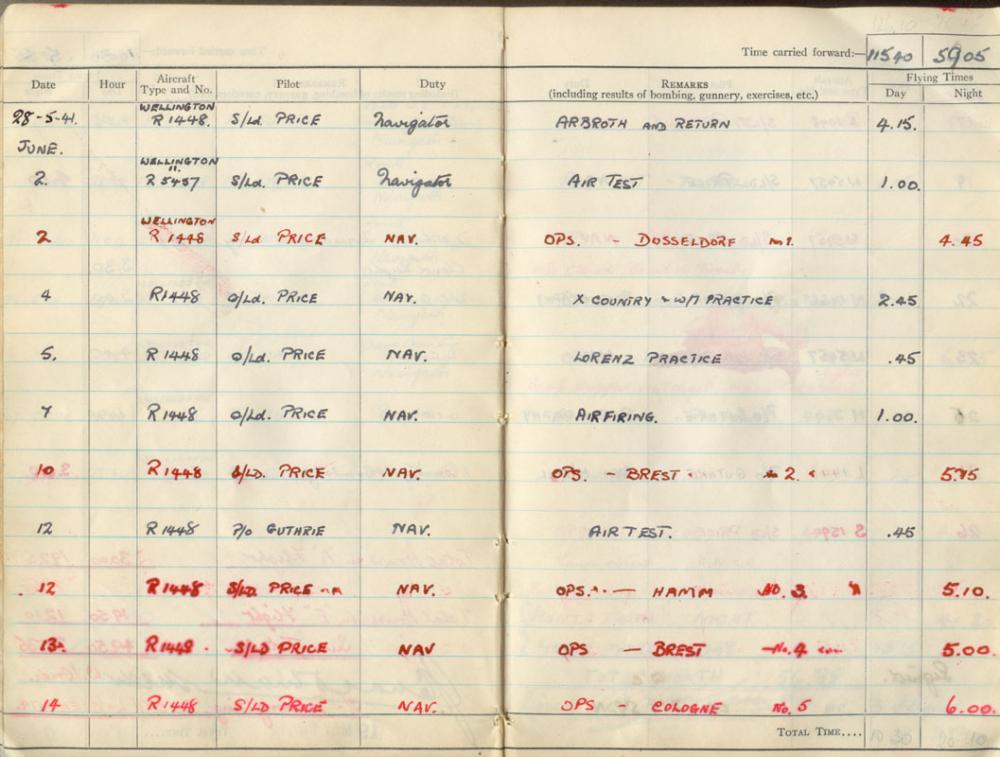 Time carried forward:— 115 40 59 05
Date Hour Aircraft Type and No. Pilot Duty REMARKS (including results of bombing, gunnery, exercises, etc.) Flying Times Day Night
28-5-41. WELLINGTON R1448. S/Ld. PRICE Navigator ARBROTH AND RETURN 4.15.
JUNE.
2. WELLINGTON II. R5457 S/Ld. PRICE Navigator AIR TEST 1.00.
2 WELLINGTON R1448 S/Ld PRICE NAV. OPS. - DUSSELDORF No 1. 4.45
4 R1448 S/Ld. PRICE NAV. X COUNTRY & W/T PRACTICE 2.45
5. R1448 S/Ld. PRICE NAV. LORENZ PRACTICE .45
7 R1448 S/Ld. PRICE NAV. AIR FIRING. 1.00.
10 R1448 S/LD. PRICE NAV. OPS. - BREST No 2. 5.15
12 R1448 P/O GUTHRIE NAV. AIR TEST. .45
12 R1448 S/LD PRICE NAV. OPS. - HAMM NO. 3. 5.10.
13 R1448 S/LD PRICE NAV OPS - BREST No. 4 5.00.
14 R1448 S/LD PRICE NAV. OPS - COLOGNE No. 5 6.00.
TOTAL TIME.... 10 30 26 40